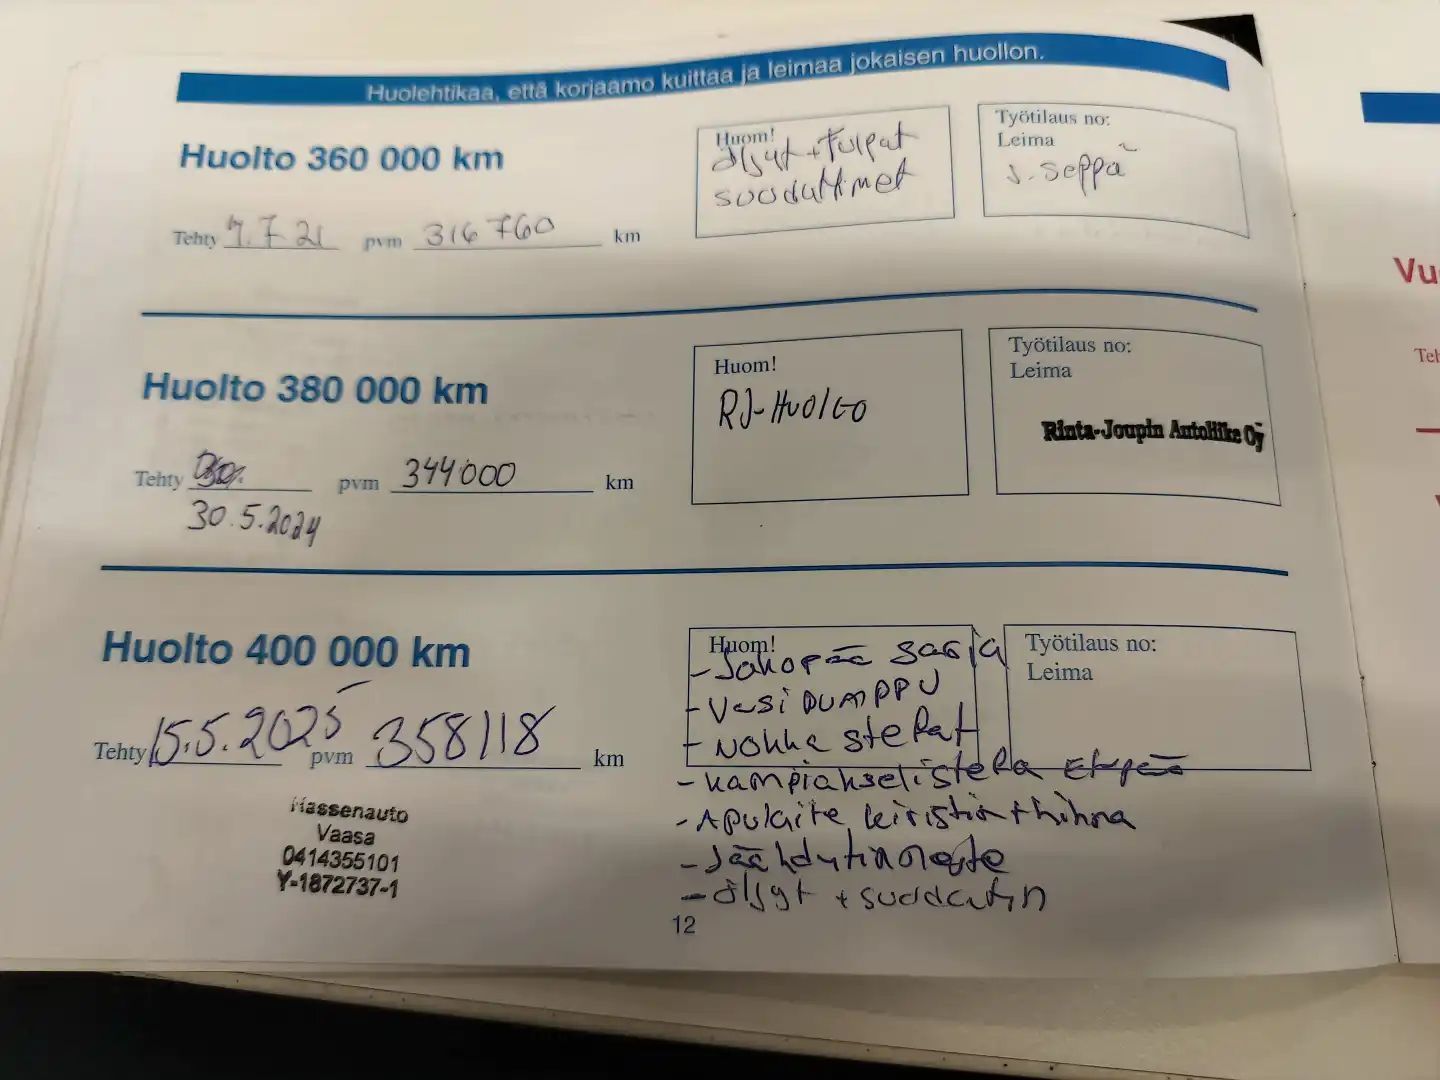 Huolehtikaa, että korjaamo kuittaa ja leimaa jokaisen huollon.
Huolto 360 000 km
Tehty 7.7 21 pvm 316 760 km
Huom!
öljyt + tulpat
suodattimet
Työtilaus no:
Leima
J. Seppä
Huolto 380 000 km
Tehty pvm 344000 km
30.5.2024
Huom!
RJ-Huolto
Työtilaus no:
Leima
Rinta-Joupin Autoliike Oy
Huolto 400 000 km
Tehty 15.5.2025 pvm 358118 km
Massenauto
Vaasa
0414355101
Y-1872737-1
Huom!
- Jakopää sarja
- Vesi pumppu
- Nokka stefat
- kampiakselistefa etupää
- Apulaite kiristin + hihna
- Jäähdytinneste
- öljyt + suodatin
Työtilaus no:
Leima
12
Vu
Teh